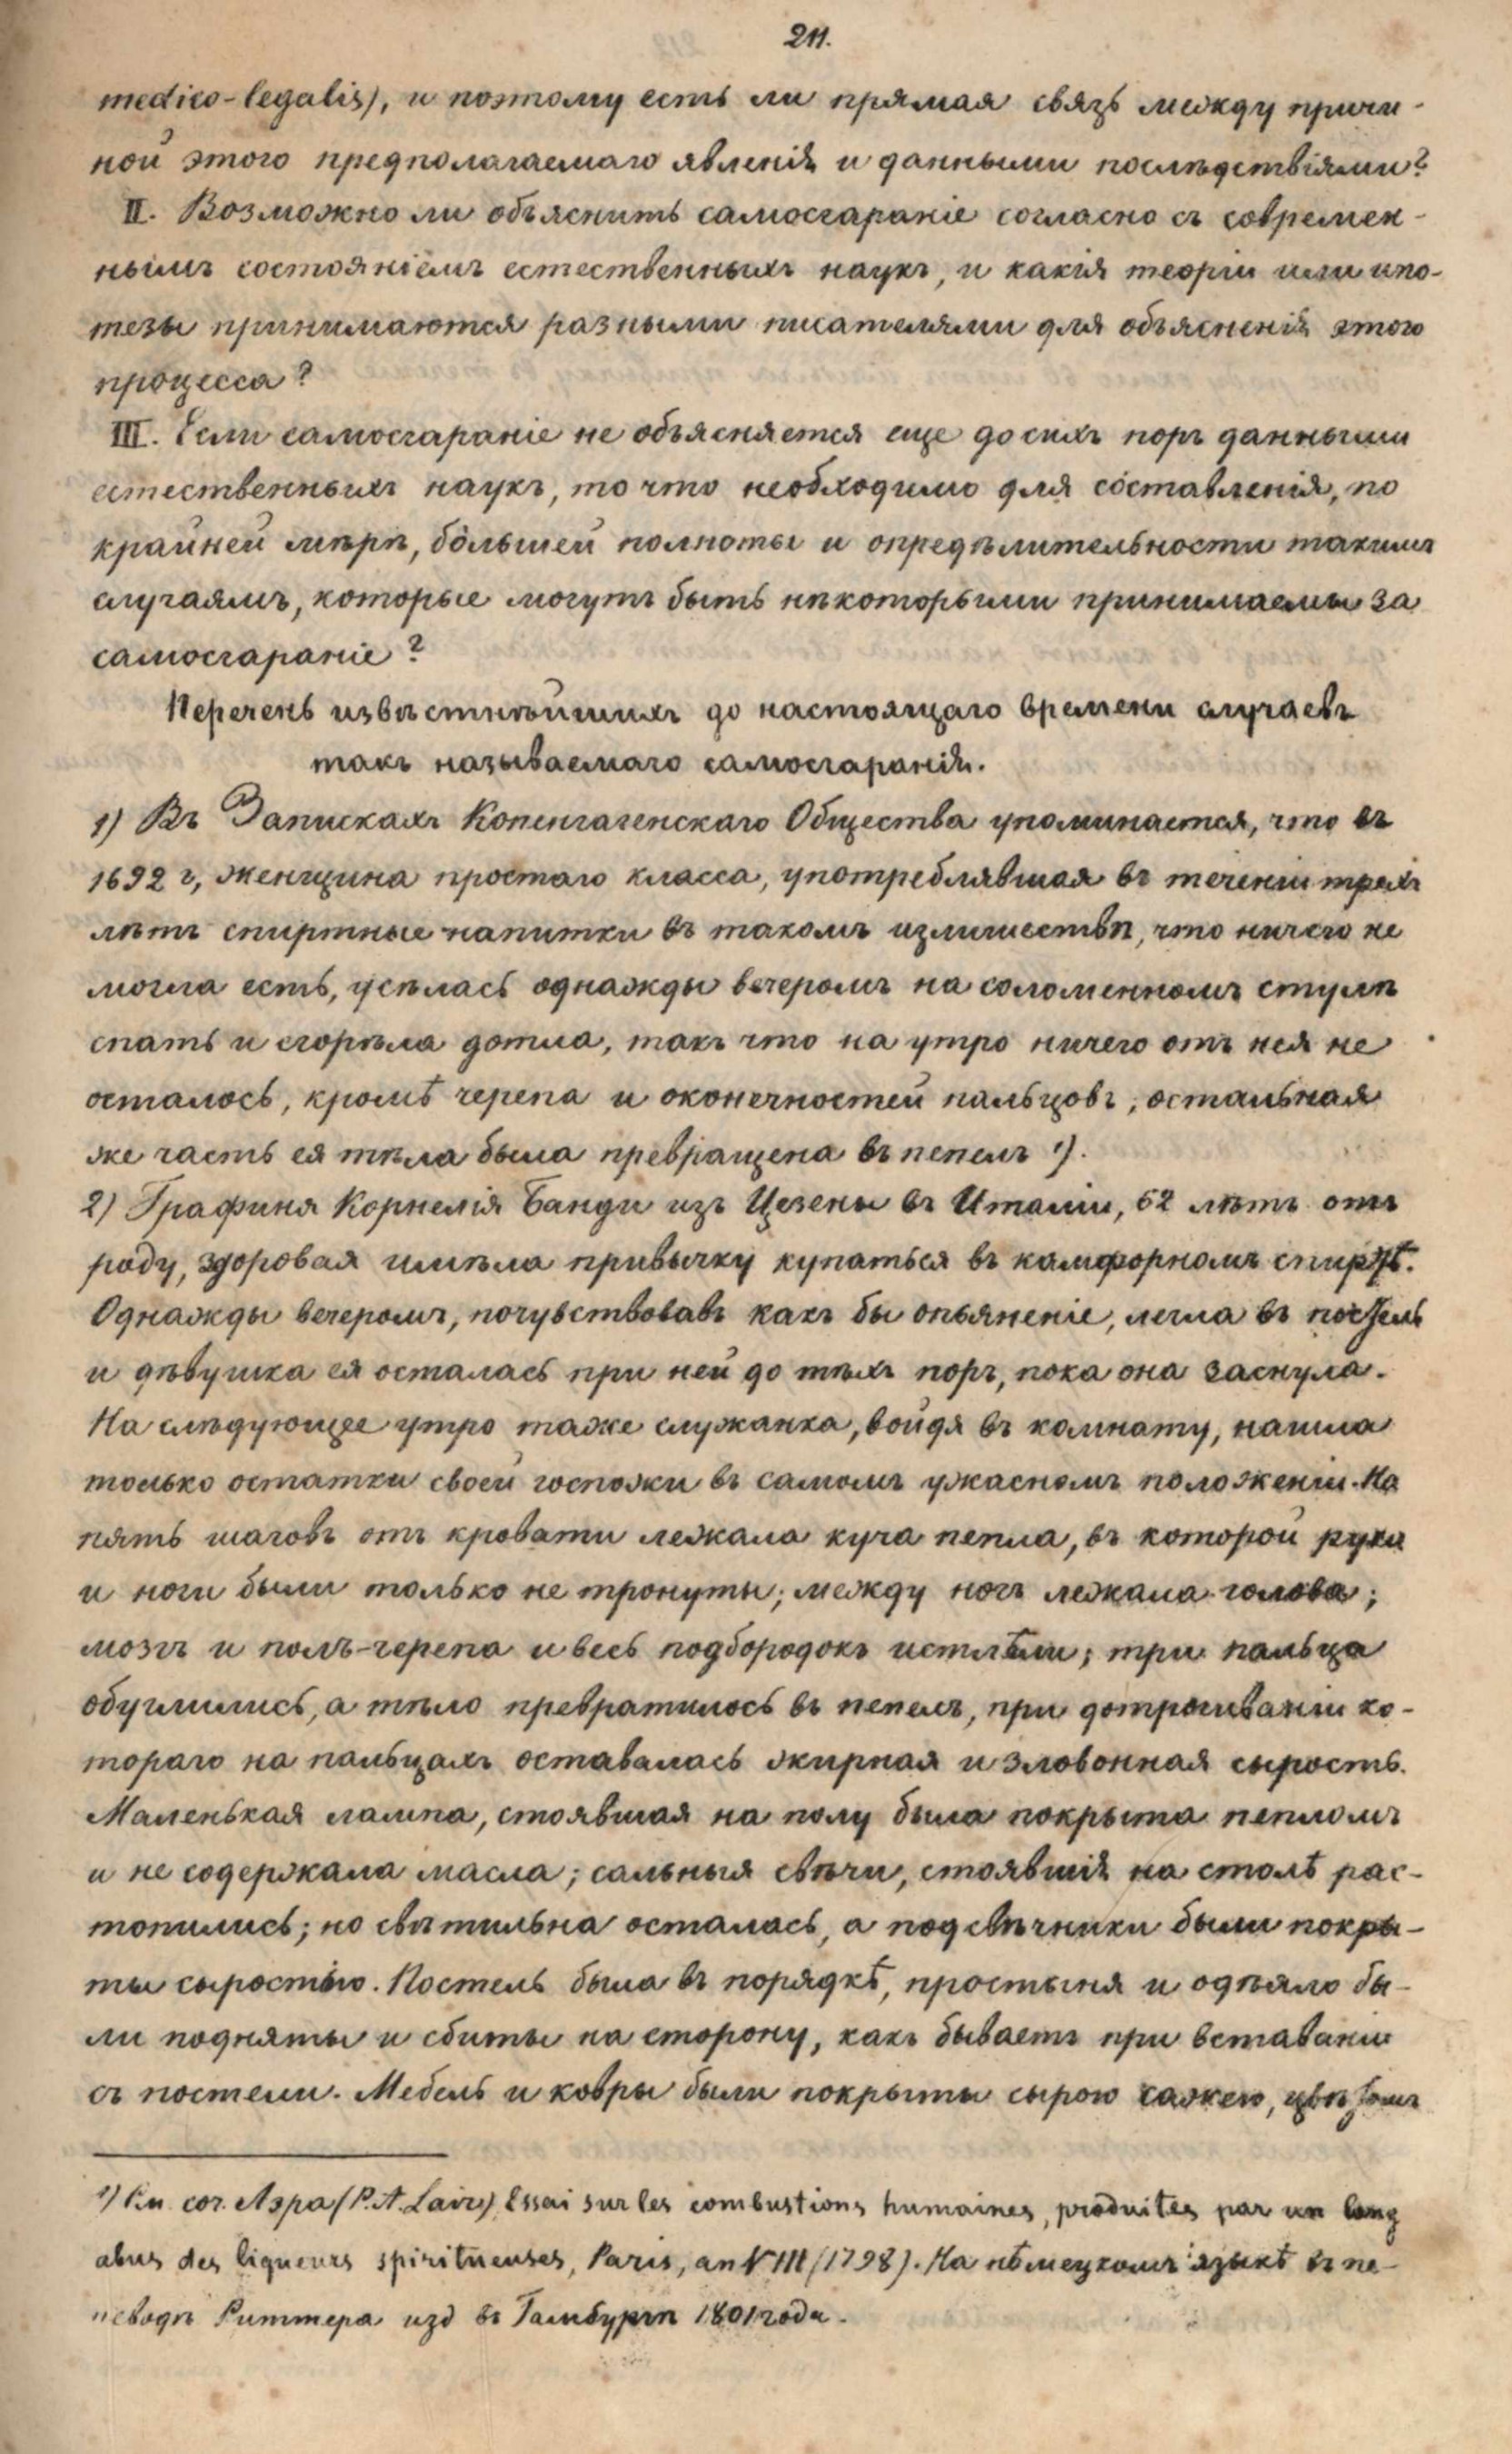 211.
medico-legalis), и поэтому есть ли прямая связь между причи-
ной этого предполагаемаго явленія и данными послѣдствіями?
II. Возможно ли объяснить самосгараніе согласно съ современ-
нымъ состояніемъ естественныхъ наукъ, и какія теоріи или ипо-
тезы принимаются разными писателями для объясненія этого
процесса?
III. Если самосгараніе не объясняется еще до сихъ поръ данными
естественныхъ наукъ, то что необходимо для составленія, по
крайней мѣрѣ, бо́льшей полноты и опредѣлительности такимъ
случаямъ, которые могутъ быть нѣкоторыми принимаемы за
самосгараніе?
Перечень извѣстнѣйшихъ до настоящаго времени случаевъ
такъ называемаго самосгаранія.
1) Въ Запискахъ Копенгагенскаго Общества упоминается, что въ
1692 г, женщина простаго класса, употреблявшая въ теченіи трехъ
лѣтъ спиртные напитки въ такомъ излишествѣ, что ничего не
могла есть, усѣлась однажды вечеромъ на соломенномъ стулѣ
спать и сгорѣла дотла, такъ что на утро ничего отъ нея не
осталось, кромѣ черепа и оконечностей пальцовъ; остальная
же часть ея тѣла была превращена въ пепелъ 1).
2) Графиня Корнелія Банди изъ Цезены въ Италіи, 62 лѣтъ отъ
роду, здоровая имѣла привычку купаться въ камфорномъ спиртѣ.
Однажды вечеромъ, почувствовавъ какъ бы опьяненіе, легла въ постель
и дѣвушка ея осталась при ней до тѣхъ поръ, пока она заснула.
На слѣдующее утро таже служанка, войдя въ комнату, нашла
только остатки своей госпожи въ самомъ ужасномъ положеніи. На
пять шаговъ отъ кровати лежала куча пепла, въ которой руки
и ноги были только не тронуты; между ногъ лежала голова;
мозгъ и полъ-черепа и весь подбородокъ истлѣли; три пальца
обуглились, а тѣло превратилось въ пепелъ, при дотрогиваніи ко-
тораго на пальцахъ оставалась жирная и зловонная сырость.
Маленькая лампа, стоявшая на полу была покрыта пепломъ
и не содержала масла; сальныя свѣчи, стоявшія на столѣ рас-
топились; но свѣтильна осталась, а подсвѣчники были покры-
ты сыростью. Постель была въ порядкѣ, простыня и одѣяло бы-
ли подняты и сбиты на сторону, какъ бываетъ при вставаніи
съ постели. Мебель и ковры были покрыты сырою сажею, цвѣтомъ
1) См. соч. Лэра (P. A. Lair) Essai sur les combustions humaines, produites par un long
abus des liqueurs spiritueuses, Paris, an VIII (1798). На нѣмецкомъ языкѣ въ пе-
реводѣ Риттера изд въ Гамбургѣ 1801 года.